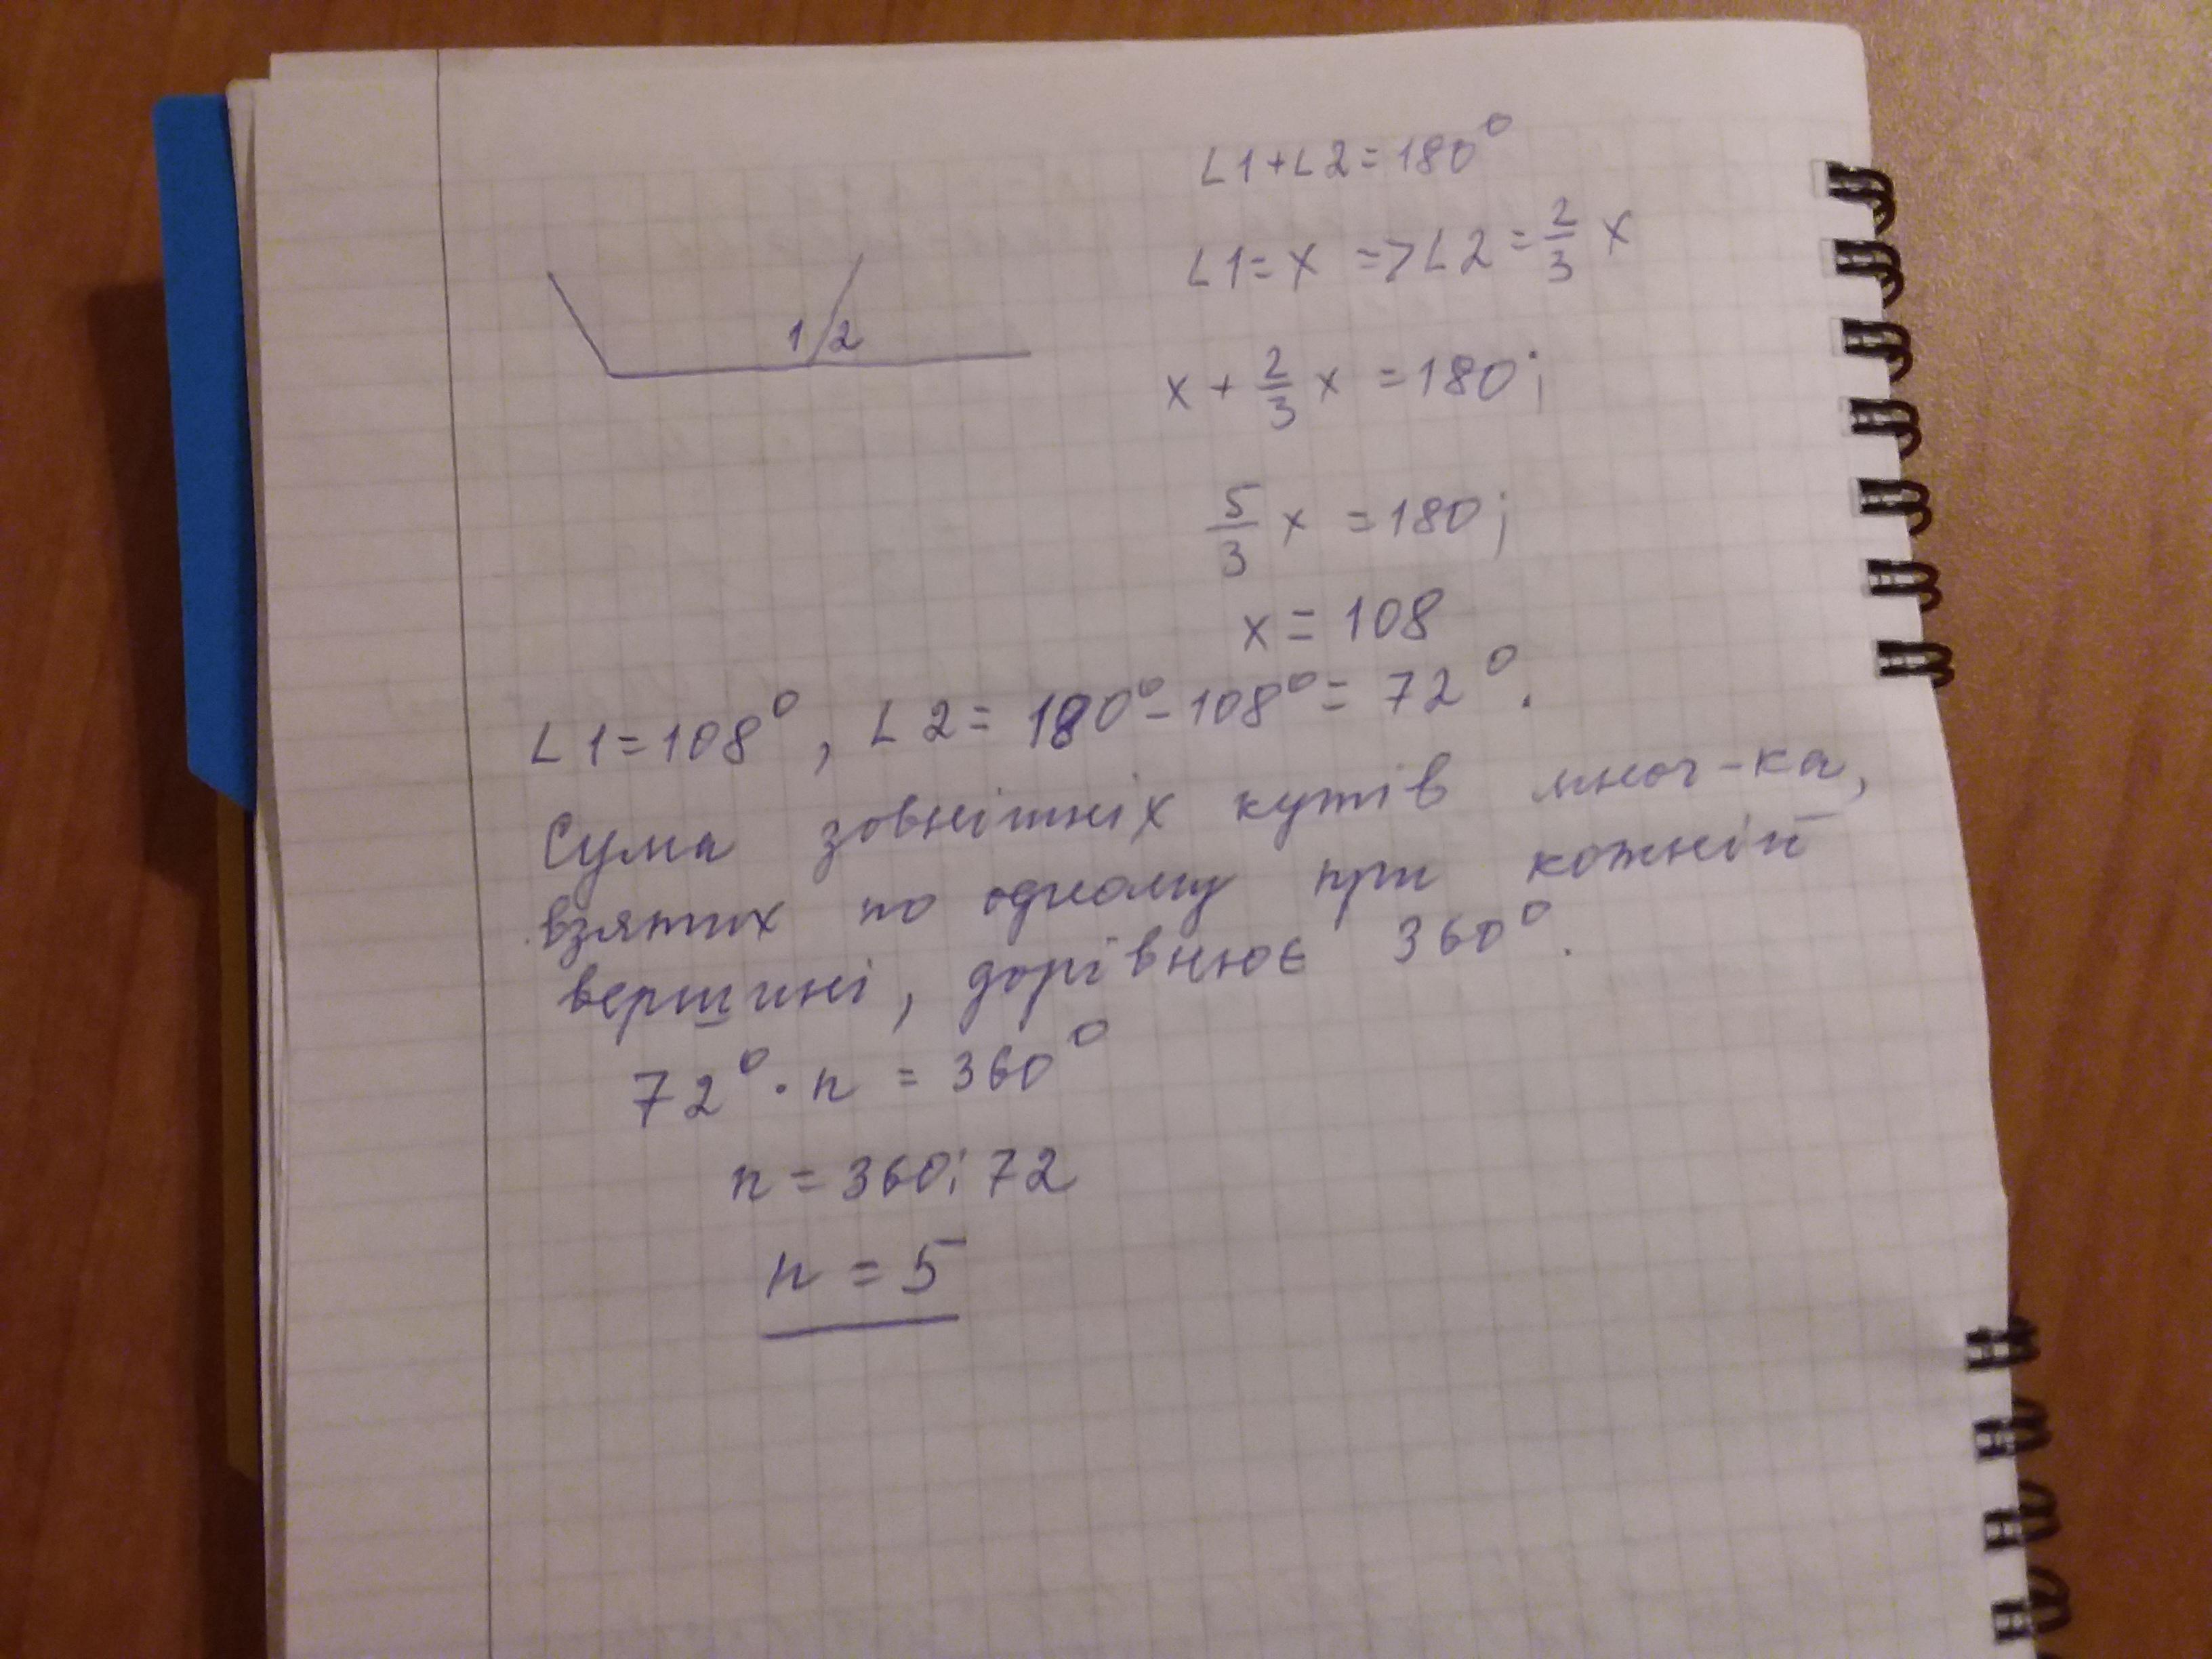 ∠1+∠2=180°
∠1=x =>∠2=2/3 x
1 2
x+2/3 x=180;
5/3 x=180;
x=108
∠1=108°, ∠2=180°-108°=72°.
Сума зовнішніх кутів мног-ка,
взятих по одному при кожній
вершині, дорівнює 360°.
72°·n=360°
n=360:72
n=5